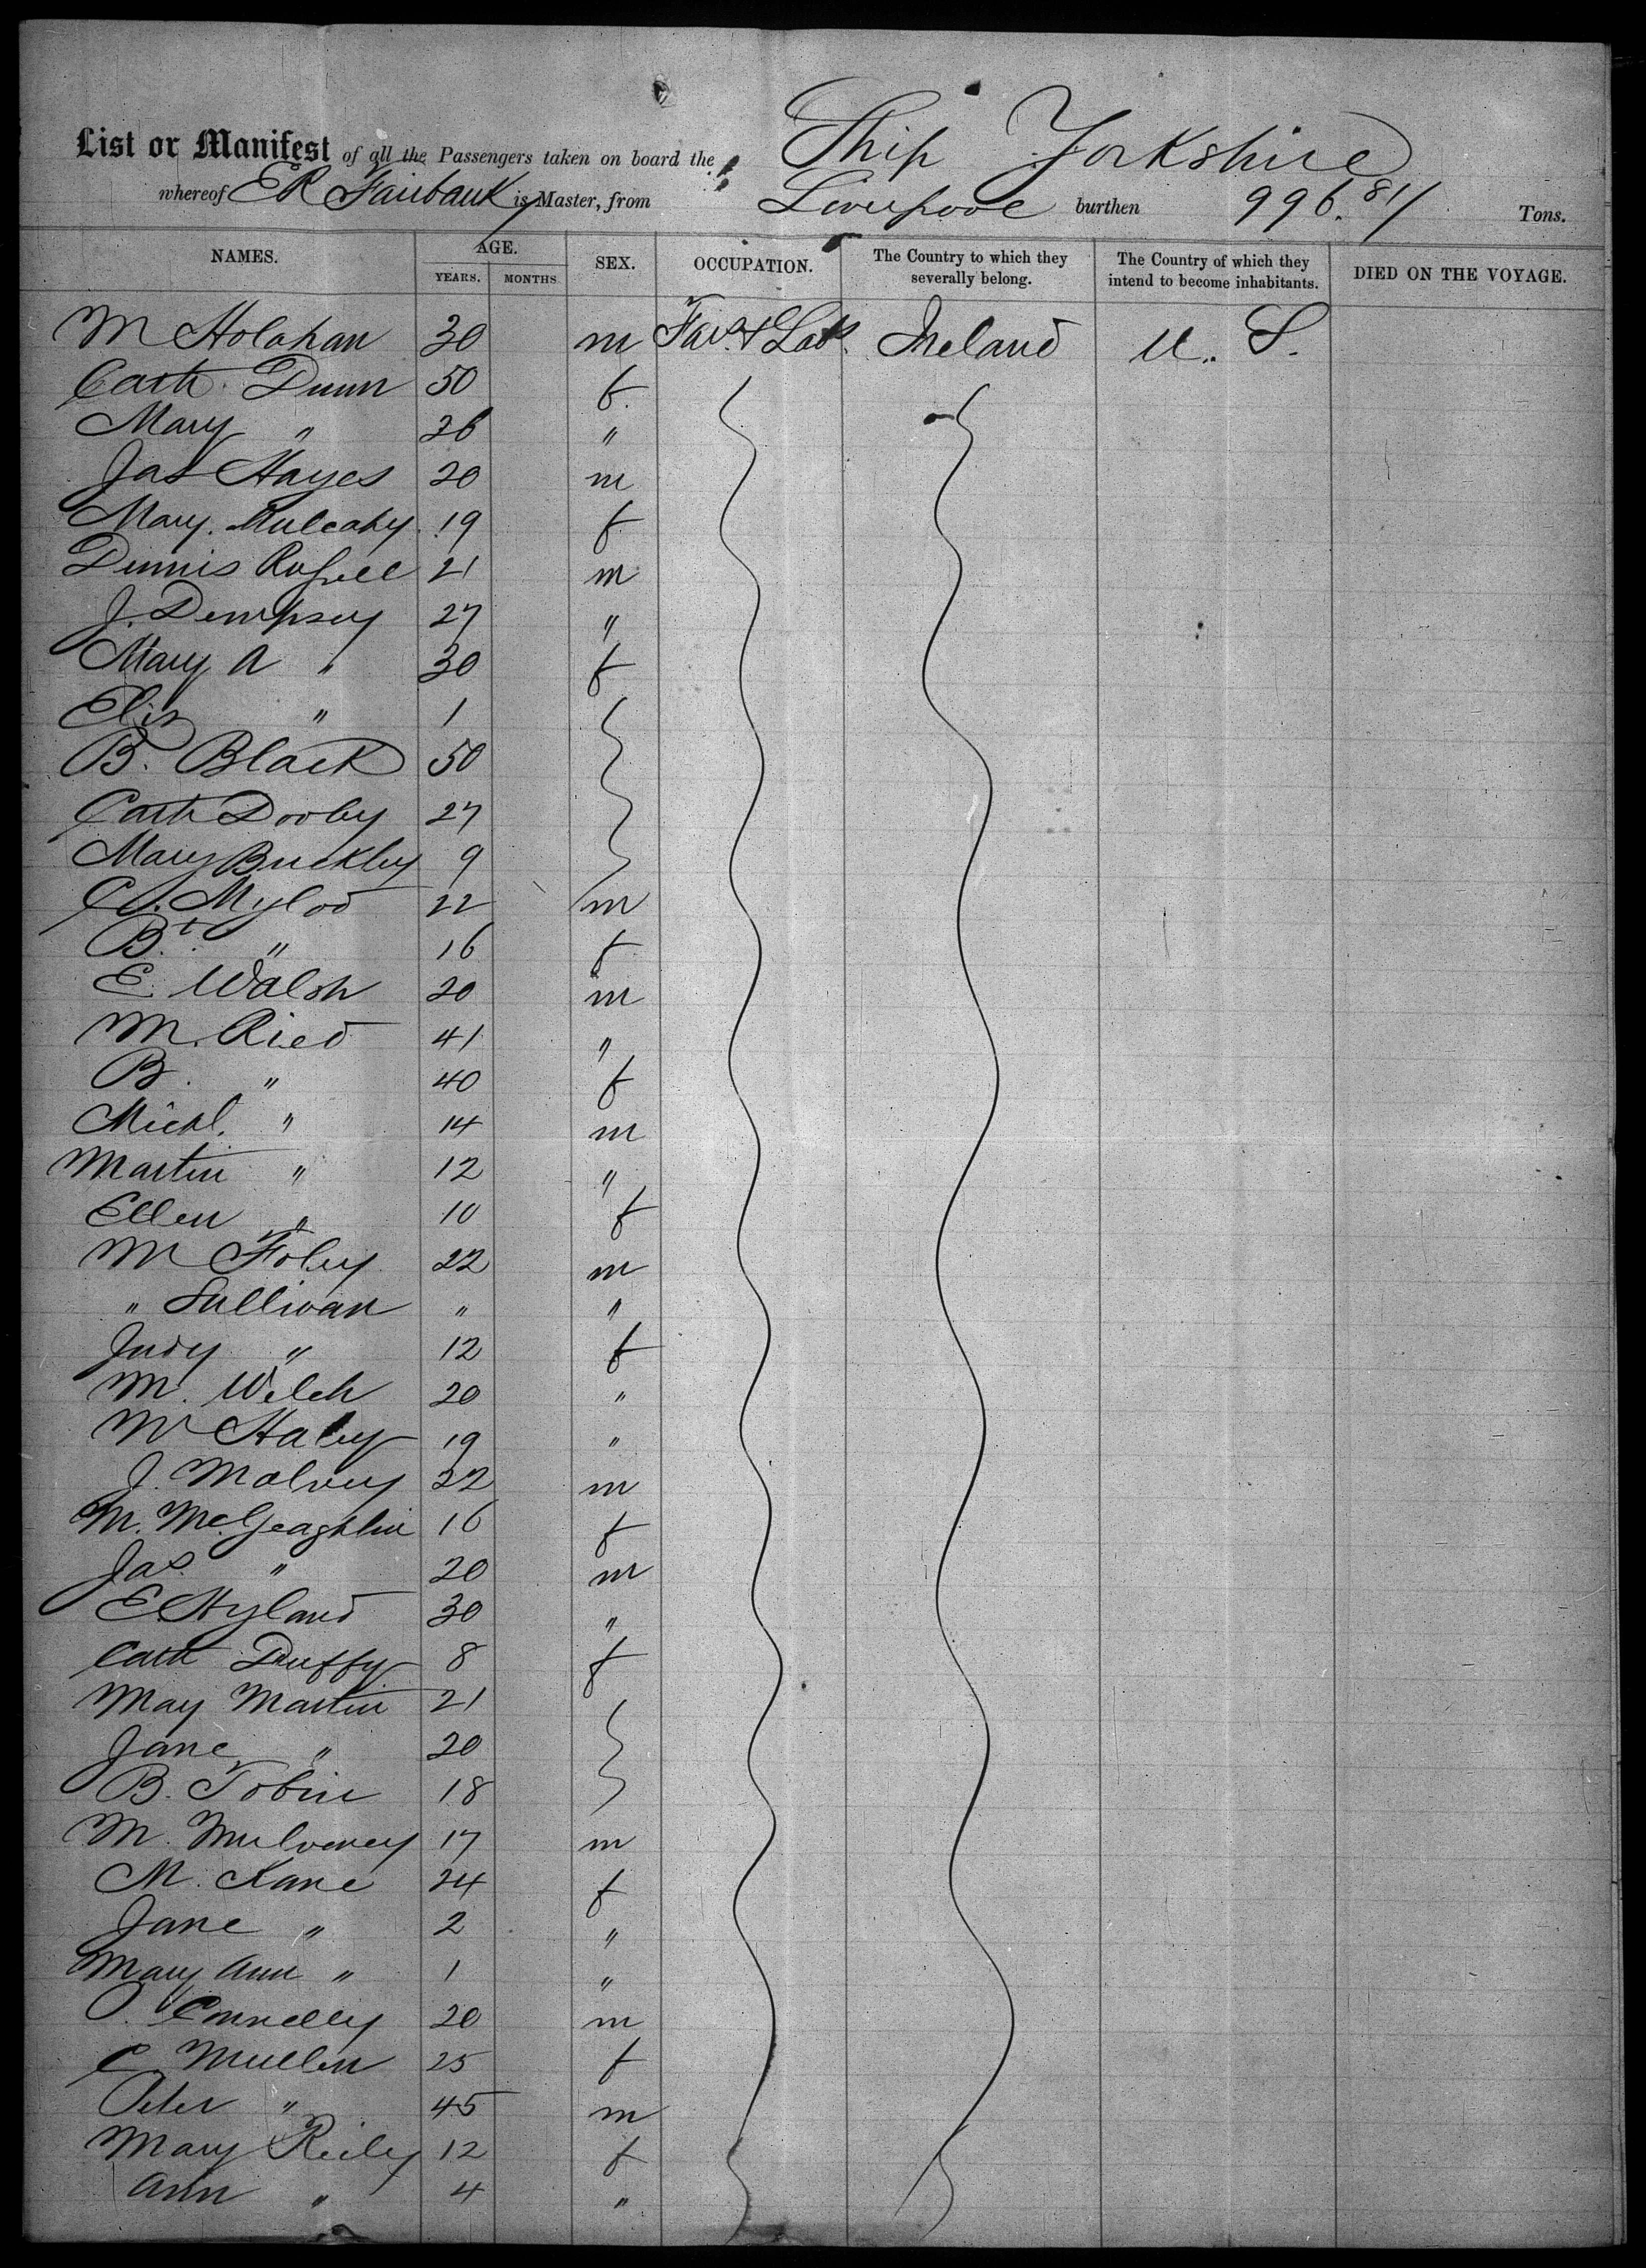 List or Manifest of all the Passengers taken on board the Ship Yorkshire
whereof E R Fairbank is Master, from Liverpool burthen 996.81/ Tons.
NAMES. AGE. YEARS. MONTHS SEX. OCCUPATION. The Country to which they severally belong. The Country of which they intend to become inhabitants. DIED ON THE VOYAGE.
M Holahan 30 m Far & Lab. Ireland U. S.
Cath Dunn 50 f.
Mary " 26 "
Jas Hayes 20 m
Mary. Mulcahy. 19 f
Dennis Russell 21 m
J. Dempsey 27 "
Mary A " 30 f
Eliz " 1
B. Black 50
Cath Dooley 27
Mary Buckley 9
C. Mylod 22 m
Bt. " 16 f
E. Walsh 20 m
M. Ried 41 "
B. " 40 f
Michl. " 14 m
Martin " 12 "
Ellen " 10 f
M Foley 22 m
" Sullivan " "
Judy " 12 f
M. Welch 20 "
M Haley 19 "
J. Malvey 22 m
M. McGeaghlin 16 f
Jas. " 20 m
E. Hyland 30 "
Cath Duffy 8 f
May Martin 21
Jane " 20
B. Tobin 18
M. Mulveney 17 m
M. Kane 24 f
Jane " 2 "
Mary Ann " 1 "
P. Connelly 20 m
C Mullen 25 f
Peter " 45 m
Mary Reily 12 f
Ann " 4 "